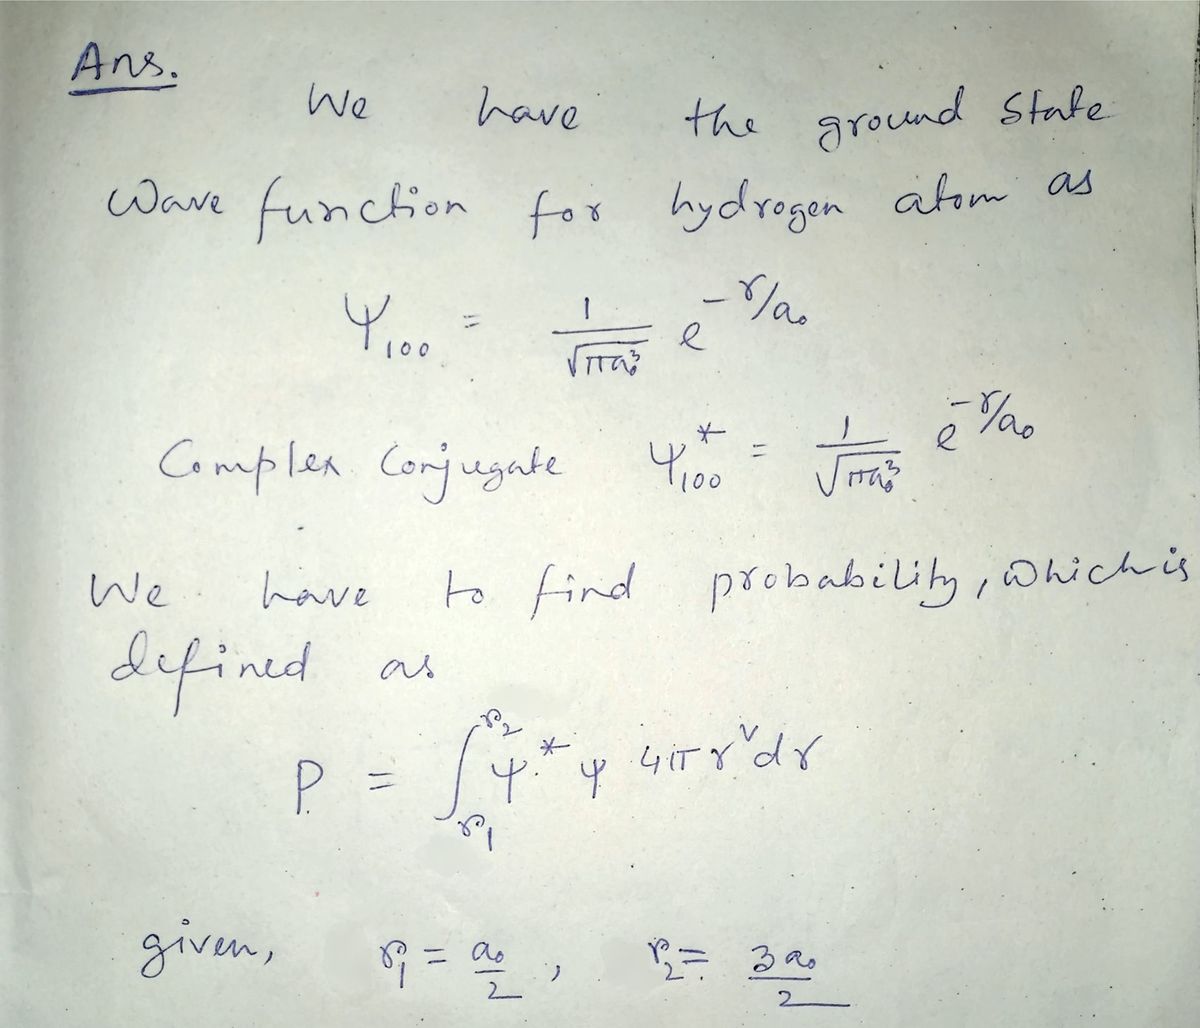 Ans.
We have the ground state
wave function for hydrogen atom as
Ψ₁₀₀ = 1/√(πa₀³) e^(-r/a₀)
Complex Conjugate Ψ₁₀₀* = 1/√(πa₀³) e^(-r/a₀)
We have to find probability, which is
defined as
P = ∫_(r₁)^(r₂) Ψ* Ψ 4π r² dr
given, r₁ = a₀/2, r₂ = 3a₀/2